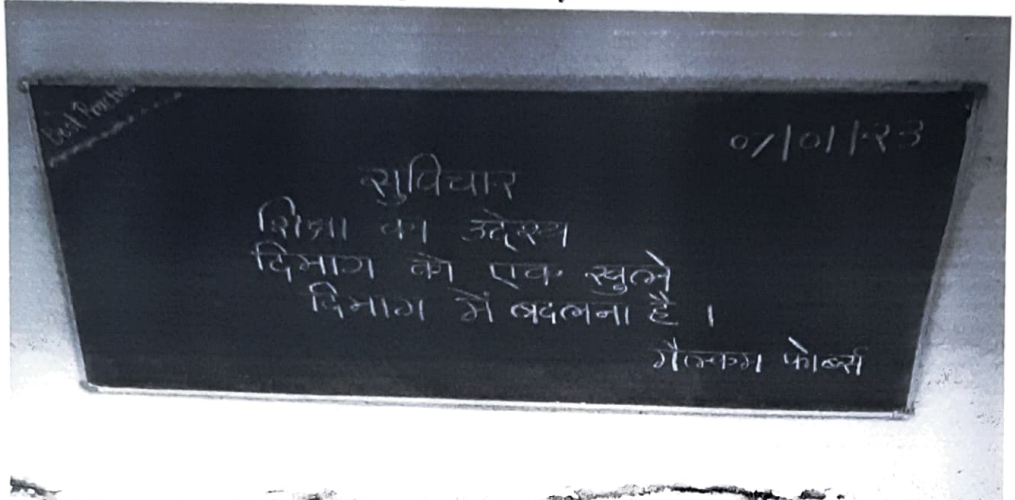 Best Practice
07/01/23
सुविचार
शिक्षा का उद्देश्य
दिमाग को एक खुले
दिमाग में बदलना है ।
मैल्कम फोर्ब्स